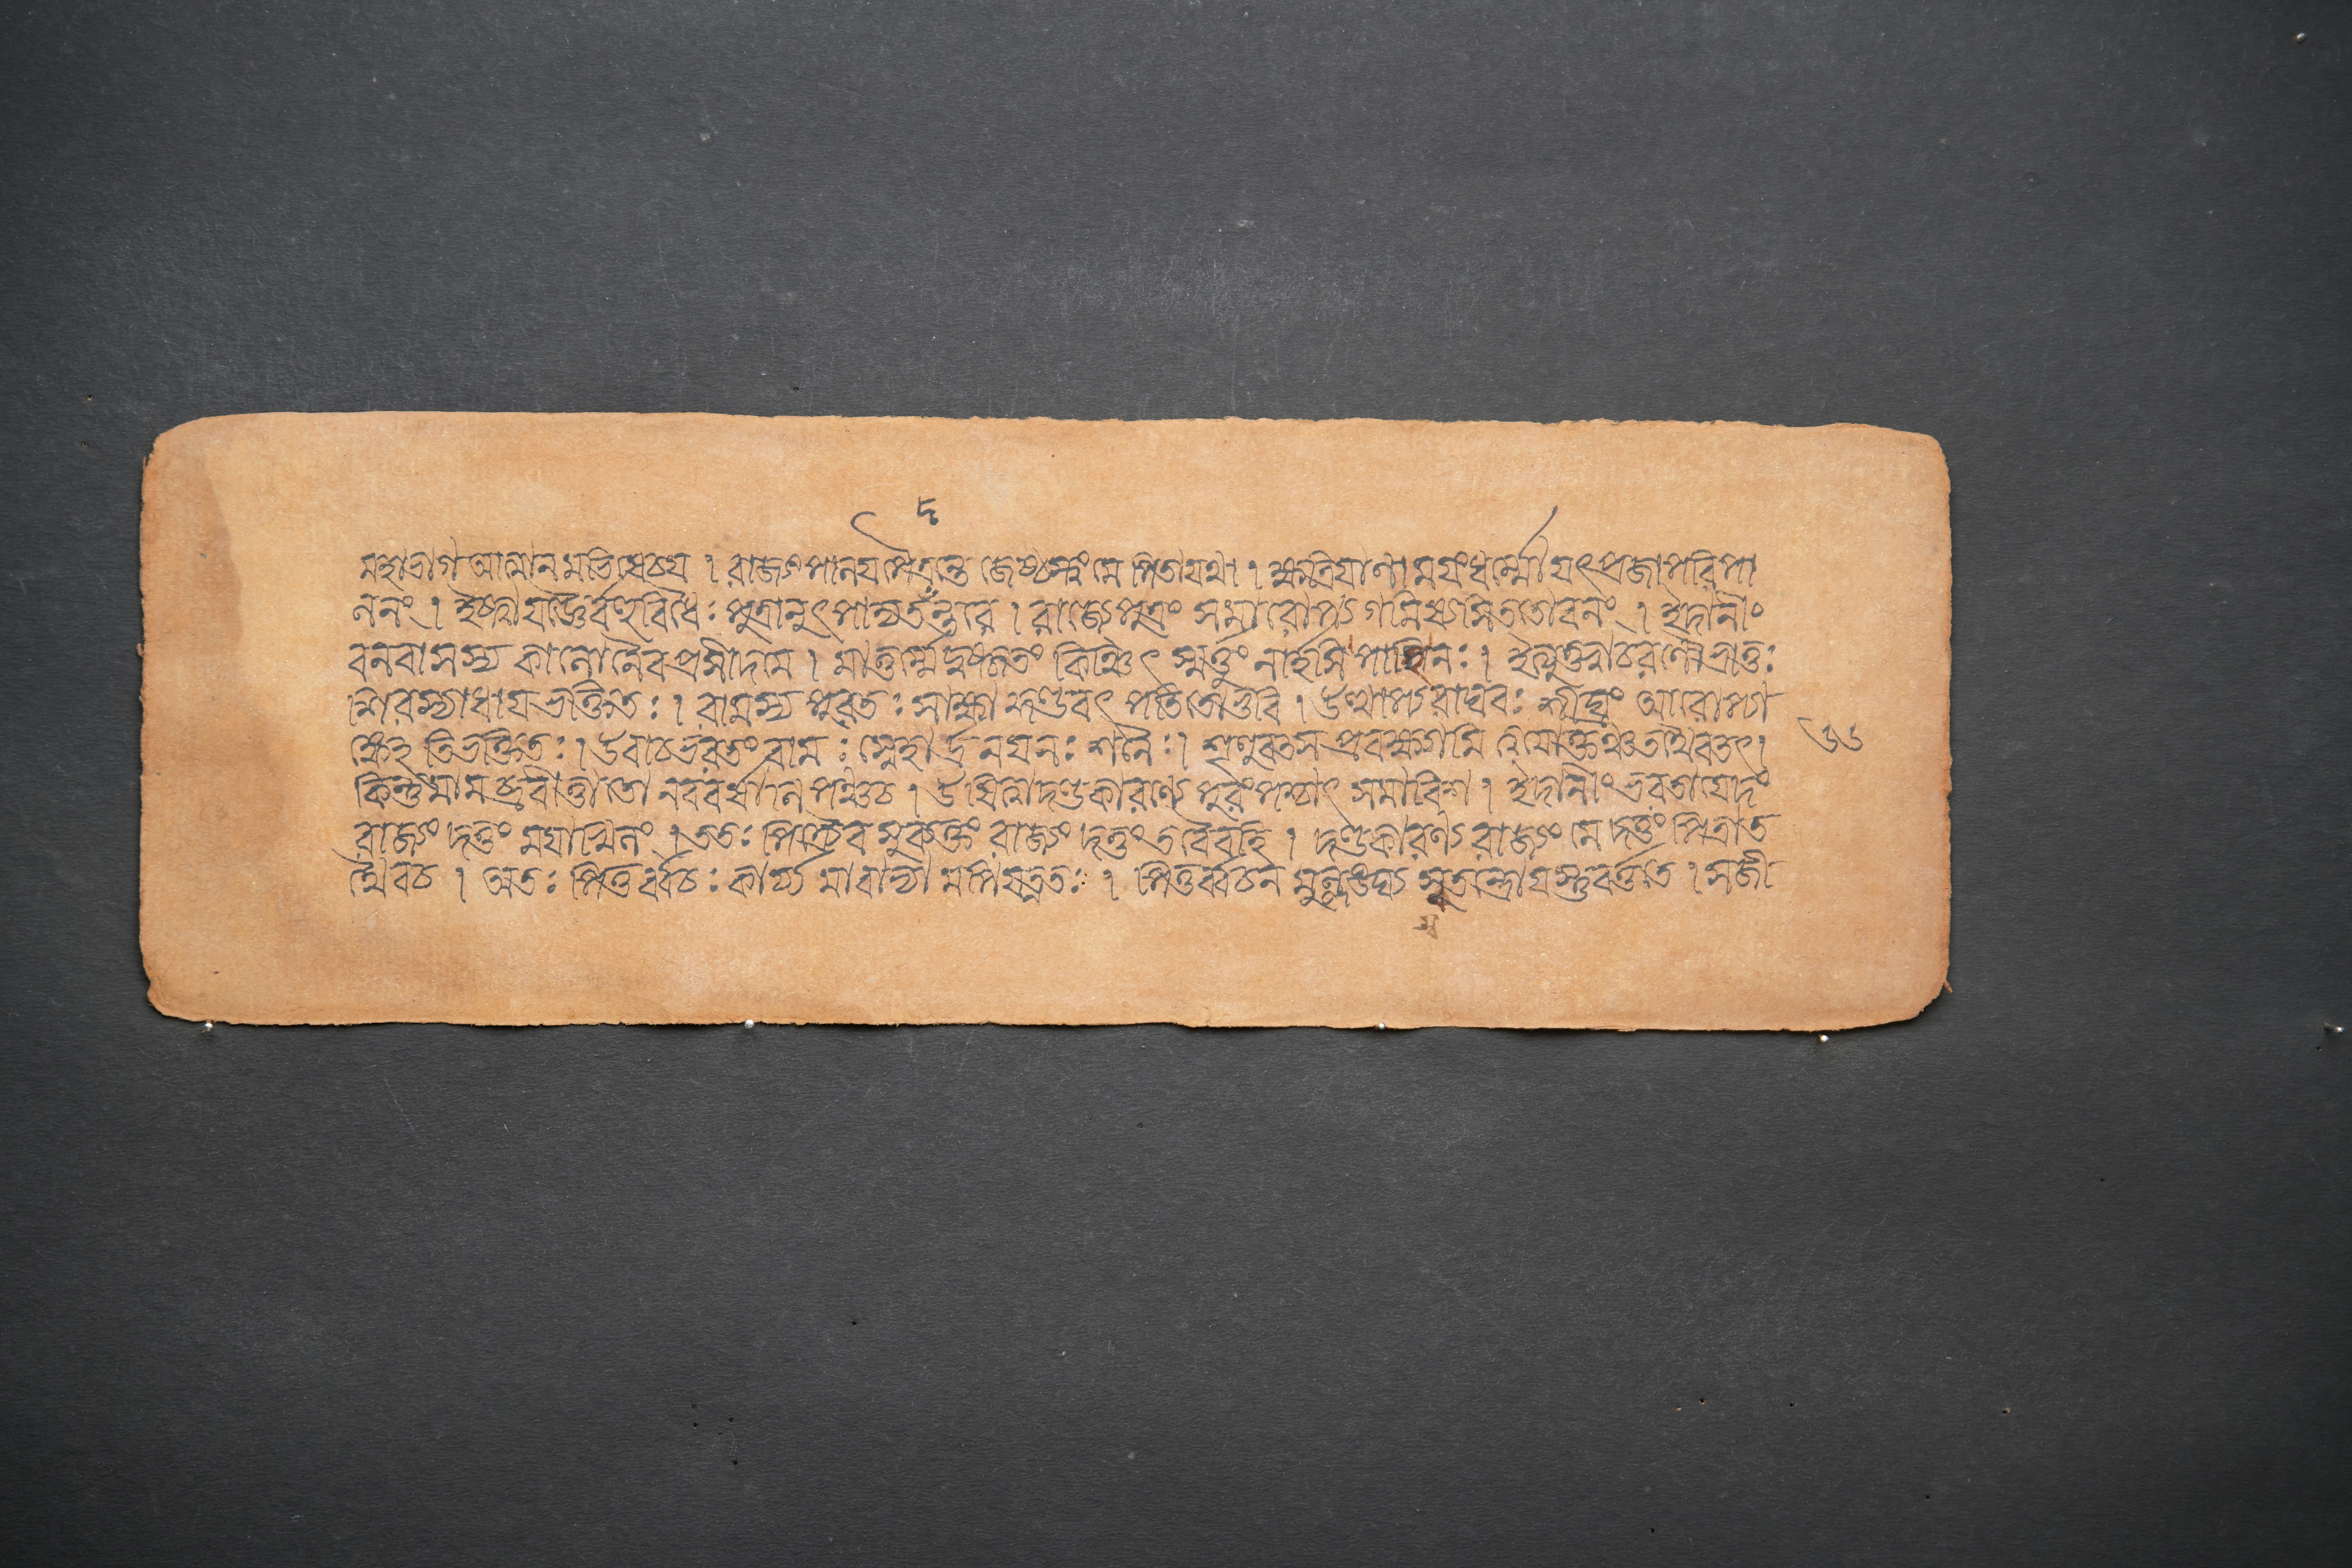 দ
মহাভাগ আত্মানমভিষেচয় । রাজ্যং পালয় পৈত্রন্তে জেষ্ঠস্ত্বং মে পিতা যথা । ক্ষত্রিয়াণাময়ং ধর্ম্মো যৎ প্রজাপরিপা
লনং । ইষ্ট্বা যজ্ঞৈর্ব্বহুবিধৈঃ পুত্রানুৎপাদ্য তন্তবে । রাজ্যে পুত্রং সমারোপ্য গমিষ্যসি ততো বনং । ইদানীং
বনবাসস্য কালো নৈব প্রসীদ মে । মাতুর্ম্মে দুষ্কৃতং কিঞ্চিৎ স্মর্ত্তুং নার্হসি পাহি নঃ । ইত্যুক্ত্বা চরণৌ ভ্রাতুঃ
শিরস্যাধায় ভক্তিতঃ । রামস্য পুরতঃ সাক্ষাদ্দণ্ডবৎ পতিতো ভুবি । উত্থাপ্য রাঘবঃ শীঘ্রং আরোপ্যা
ঙ্কেহতিভক্তিতঃ । উবাচ ভরতং রামঃ স্নেহার্দ্রনয়নঃ শনৈঃ । শৃণু বৎস প্রবক্ষ্যামি ত্বয়োক্তং যত্তথৈব তৎ ।
কিন্তু মামব্রবীত্তাতো নব বর্ষাণি পঞ্চ চ । উষিত্বা দণ্ডকারণ্যে পুরং পশ্চাৎ সমাবিশ । ইদানীং ভরতায়েদং
রাজ্যং দত্তং ময়াখিলং । ততঃ পিত্রৈব সুব্যক্তং রাজ্যং দত্তং তবৈব হি । দণ্ডকারণ্যরাজ্যং মে দত্তং পিত্রা ত
থৈব চ । অতঃ পিতুর্ব্বচঃ কার্য্যমাবাভ্যামপি যত্নতঃ । পিতুর্ব্বচনমুল্লঙ্ঘ্য স্বতন্ত্রো যস্তু বর্ত্ততে । স জী
স্ব
৬৬